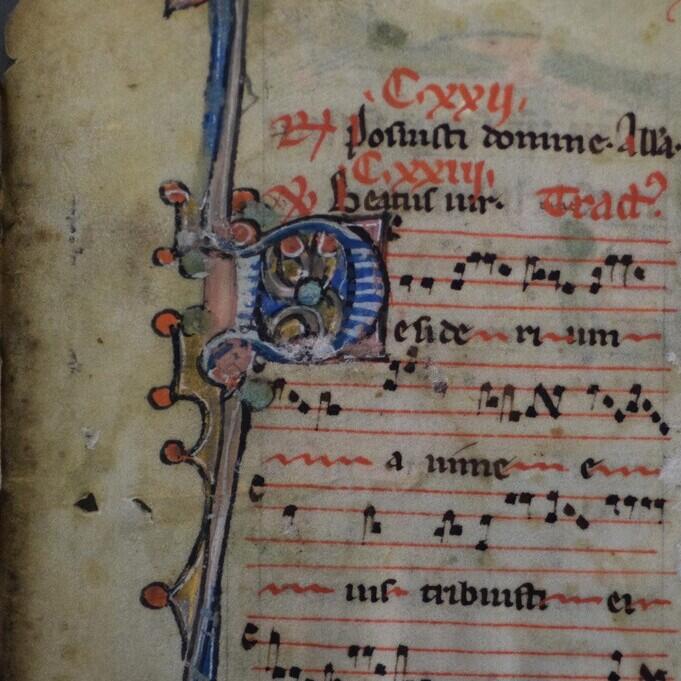 C.xxij.
R̷ Posuisti domine. Alla.
C.xxiiij.
Beatus uir. Tract̉
Deside rium
a nime e
ius tribuisti ei